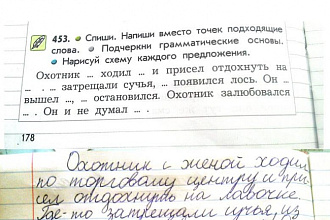 453. • Спиши. Напиши вместо точек подходящие
слова. • Подчеркни грамматические основы.
• Нарисуй схему каждого предложения.
Охотник ... ходил ... и присел отдохнуть на
... . ... затрещали сучья, ... появился лось. Он ...
вышел ..., ... остановился. Охотник залюбовался
... . Он и не думал ... .
178
Охотник с женой ходил
по торговому центру и при-
сел отдохнуть на лавочке.
Где-то затрещали сучья, из